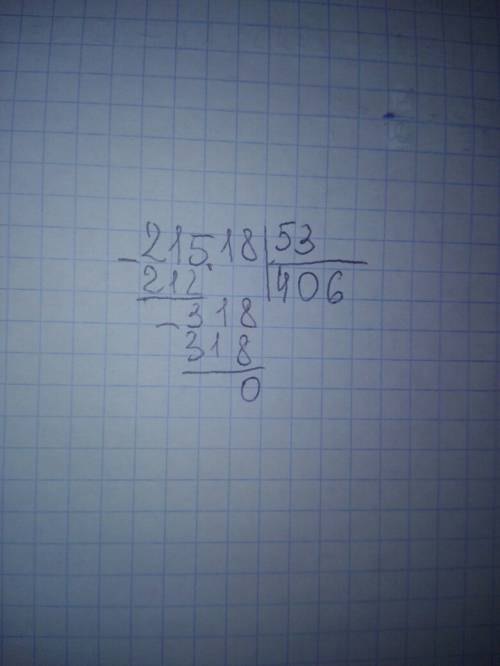 - 21518 | 53
212 | 406
- 318
318
0